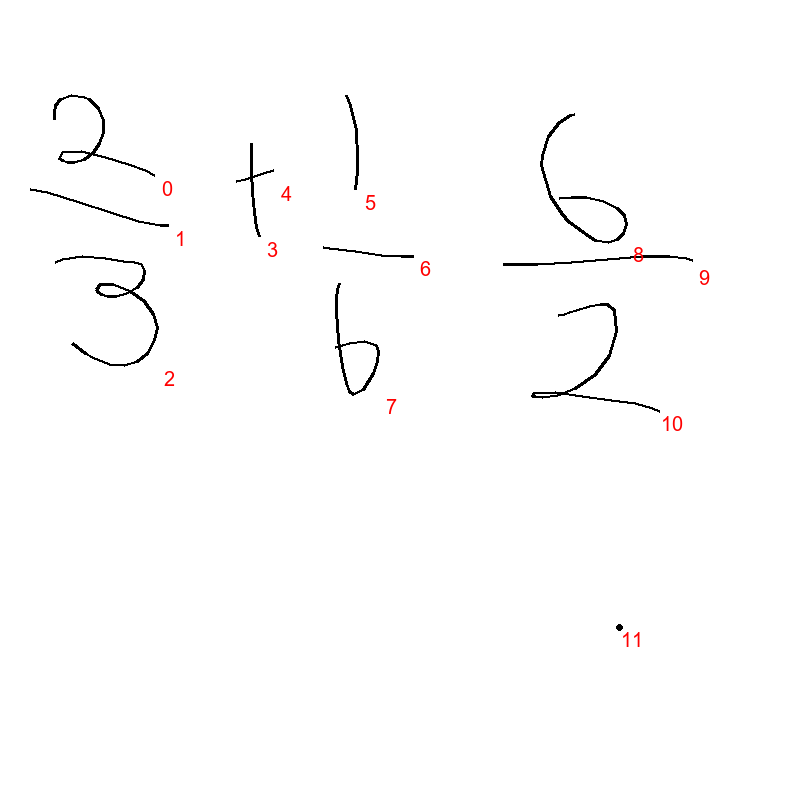 2/3 + 1/6 6/2
0 1 2 3 4 5 6 7 8 9 10 11